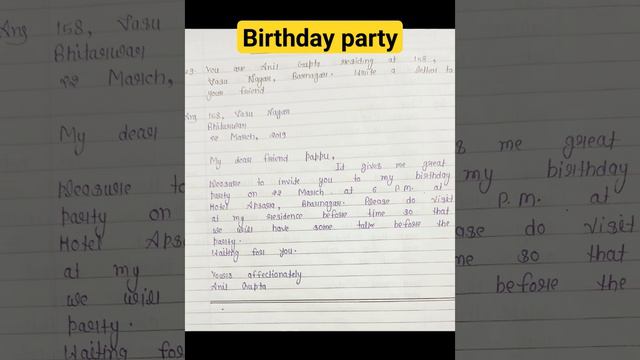 Birthday party
You are Anil Gupta residing at 158,
Vasu Nagar, Write a letter to
your friend
Ans 158, Vasu Nagar
Bhitarwar
22 March, 2019
My dear friend Pappu,
It gives me great
pleasure to invite you to my birthday
party on 22 March at 6 P.M. at
Hotel Apsara, Please do visit
at my residence before time so that
we will have some talk before the
party.
Waiting for you.
Yours affectionately
Anil Gupta
Ans 158, Vasu
Bhitarwar
22 March,
My dear
pleasure to
party on
Hotel Apsara
at my
we will
party.
Waiting for
me great
my birthday
P.M. at
ase do visit
me so that
before the